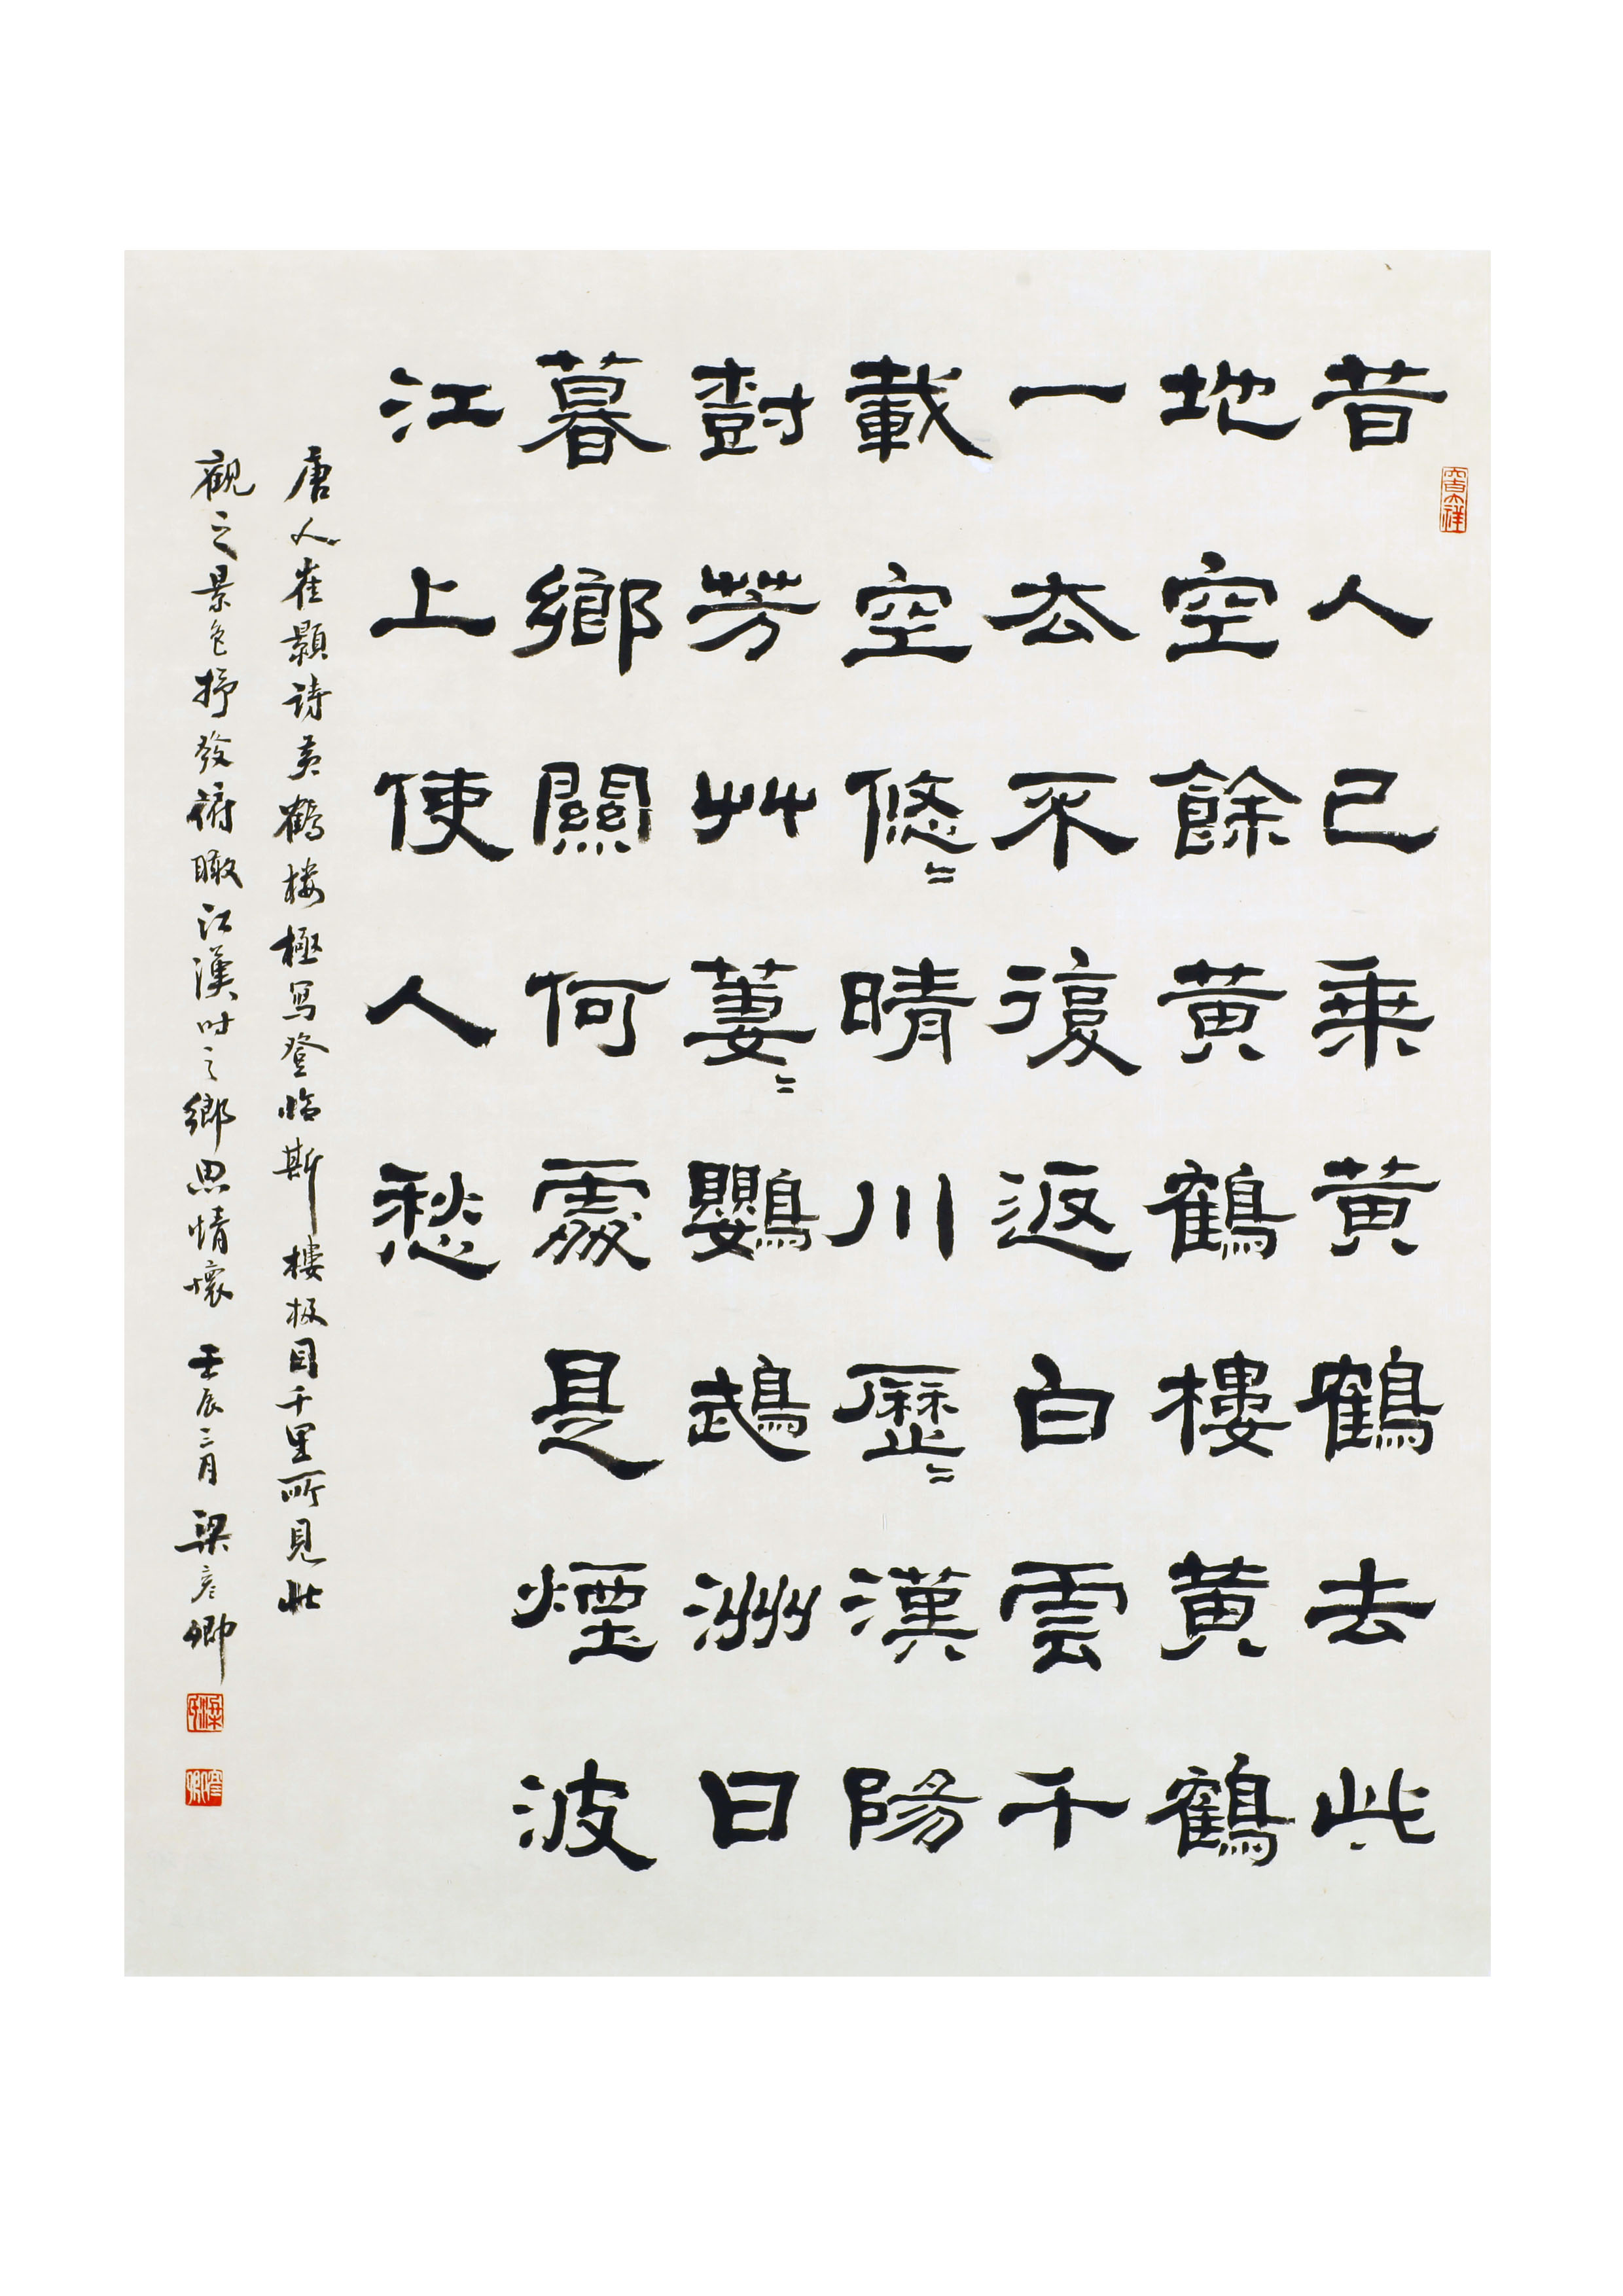 昔人已乘黃鶴去此
地空餘黃鶴樓黃鶴
一去不復返白雲千
載空悠〻晴川歷〻漢陽
對芳艸萋〻鸚鵡洲日
暮鄉關何處是煙波
江上使人愁
唐人崔顥诗黄鶴楼極写登临斯樓极目千里所見壯
觀之景色抒发俯瞰江漢时之鄉思情懷 壬辰三月 梁彦卿